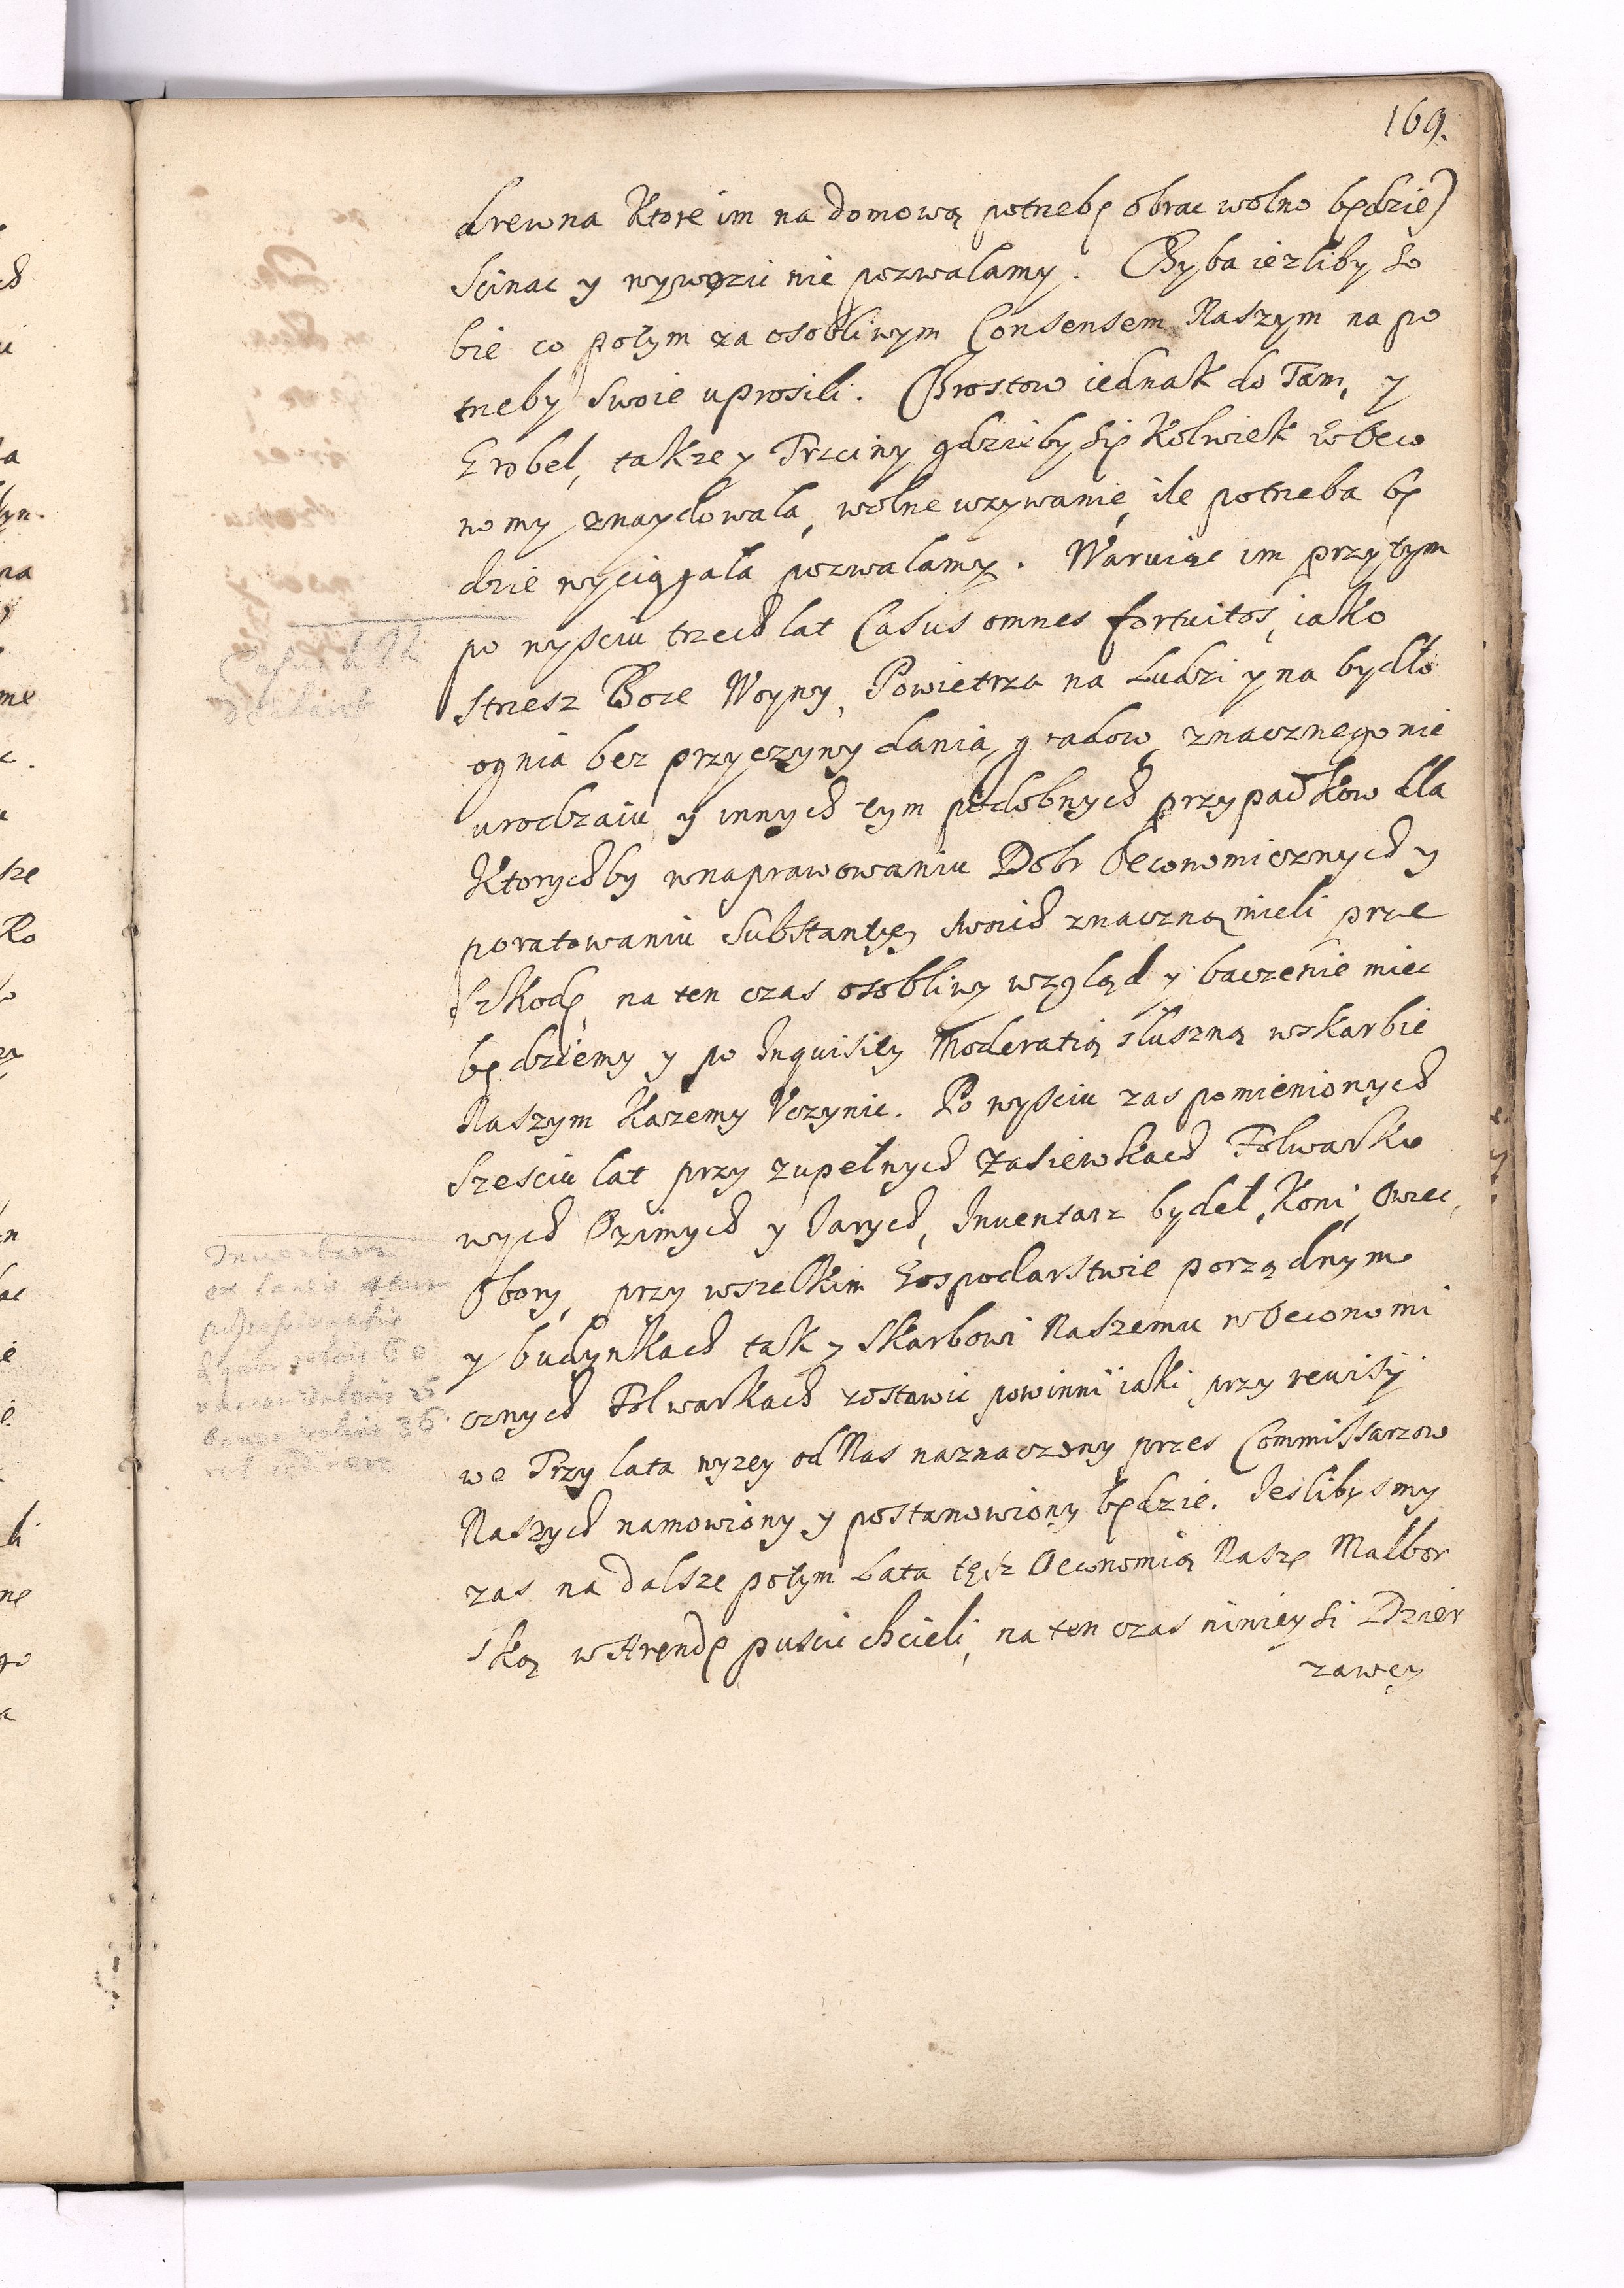 169.
drewna Ktore im na domową potrzebę obrac wolno będzie)
scinac y wywozic nie pozwalamy. Chyba iezliby so
bie co potym za osobliwym Consensem Naszym na po
trzeby swoie uprosili. Chrostow iednak do Tam, y
Grobel, takze y Trzciny gdzieby się Kolwiek w Oeco
nomy znaydowala, wolne uzywanie, ile potrzeba bę
dzie wyciągała pozwalamy. Waruiąc im przytym
po wysciu trzech lat Casus omnes fortuitos, iako
strzesz Boze Woyny, Powietrza na Ludzi y na bydło
ognia bez przyczyny dania, gradow, znacznego nie
urodzaiu y innych tym podobnych przypadkow dla
Ktorychby w naprawowaniu Dobr Oeconomicznych y
poratowaniu substantyey swoich znaczną mieli prze
szkodę, na ten czas osobliwy wzgląd y baczenie miec
będziemy y po Inquisicy Moderatią słuszną w skarbie
Naszym Kazemy Vczynic. Po wysciu zas pomienionych
szesciu lat przy zupełnych Zasiewkach Folwarko
wych Ozimych y Jarych, Inuentarz bydeł, Koni, Owiec,
Obory, przy wszelkim Gospodarstwie porządnym
y budynkach tak y Skarbowi Naszemu w Oeconomi
cznych Folwarkach zostawic powinni iaki przy rewisij
we Trzy lata wyzey od Nas naznaczony przes Commissarzow
Naszych namowiony y postanowiony będzie. Jeslibysmy
zas na dalsze potym Lata tęsz Oeconomią Naszę Malbor
ską w Arendę puscic chcieli, na ten czas ninieysi Dzier
zawcy
Inuentarz